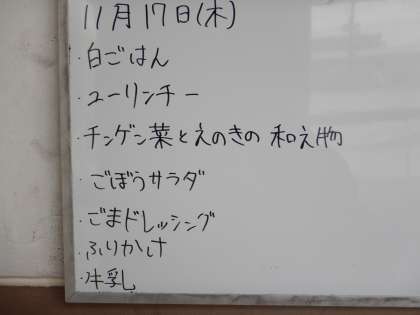 11月17日(木)
・白ごはん
・ユーリンチー
・チンゲン菜とえのきの和え物
・ごぼうサラダ
・ごまドレッシング
・ふりかけ
・牛乳